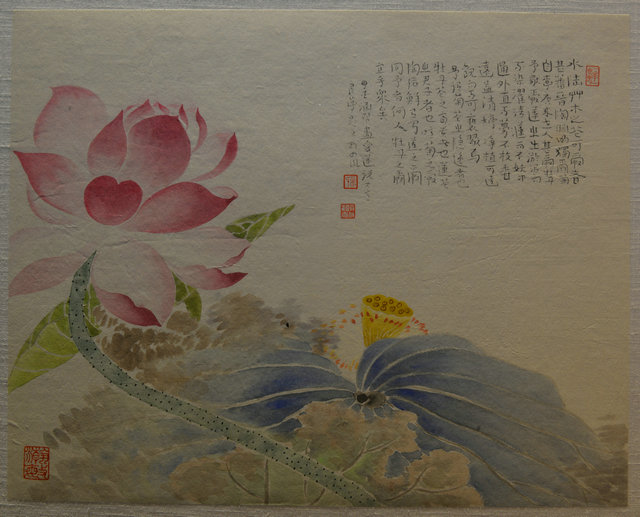 水陸艸木之花可愛者
甚蕃晉陶淵明獨愛菊
自李唐來世人甚愛牡丹
予獨愛蓮之出淤泥而
不染濯清漣而不妖中
通外直不蔓不枝香
遠益清婷婷淨植可遠
觀而不可褻玩焉
予謂菊花之隱逸者也
牡丹花之富貴者也蓮花
之君子者也噫菊之愛
陶後鮮有聞蓮之愛
同予者何人牡丹之愛
宜乎衆矣